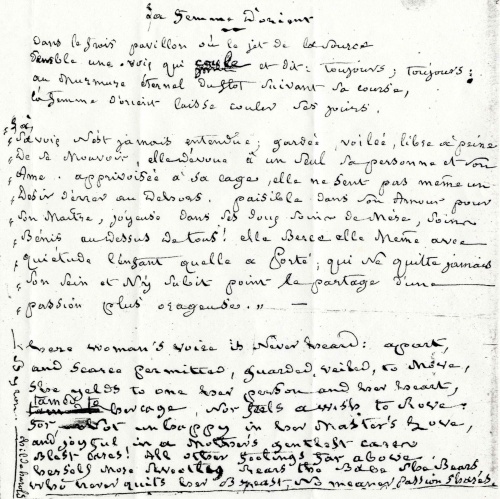 La Femme D'orient
Dans le frais pavillon où le jet de la source
semble une voix qui coule et dit: toujours; toujours:
au murmure éternel du flot suivant sa course,
la femme d'orient laisse couler ses jours.
Là,
sa voix n'est jamais entendue; gardée, voilée, libre à peine
De se mouvoir, elle dévoue à un seul sa personne et son
Ame. apprivoisée à sa cage, elle ne sent pas même un
Desir d'errer au Dehors. paisible dans son amour pour
son Maître, joyeuse dans ses doux soins de Mère, soins
Bénis au dessus De tous! elle Berce elle Même avec
quiétude l'enfant quelle a Porté; qui ne quitte jamais
son sein et N'y subit point le partage d'une
passion plus orageuse. "
Here woman's voice is Never heard: apart,
and scarce permitted, guarded, veiled, to Move,
She yelds to one her person and her heart,
tamed to her cage, Nor feels a wish to Rove:
For Not unhappy in her Master's Love,
and joyful in a Mother's gentlest cares
Blest cares! All other feelings far above
herself More Sweetley Rears the Babe She Bears
Who never quits her Breast, No meaner Passion Shares
Byron
Childe Harold